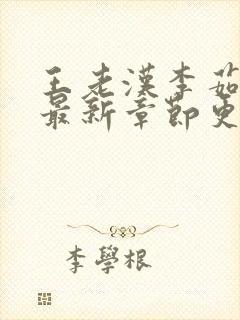 王老漢李茹
最新章節更
李學根